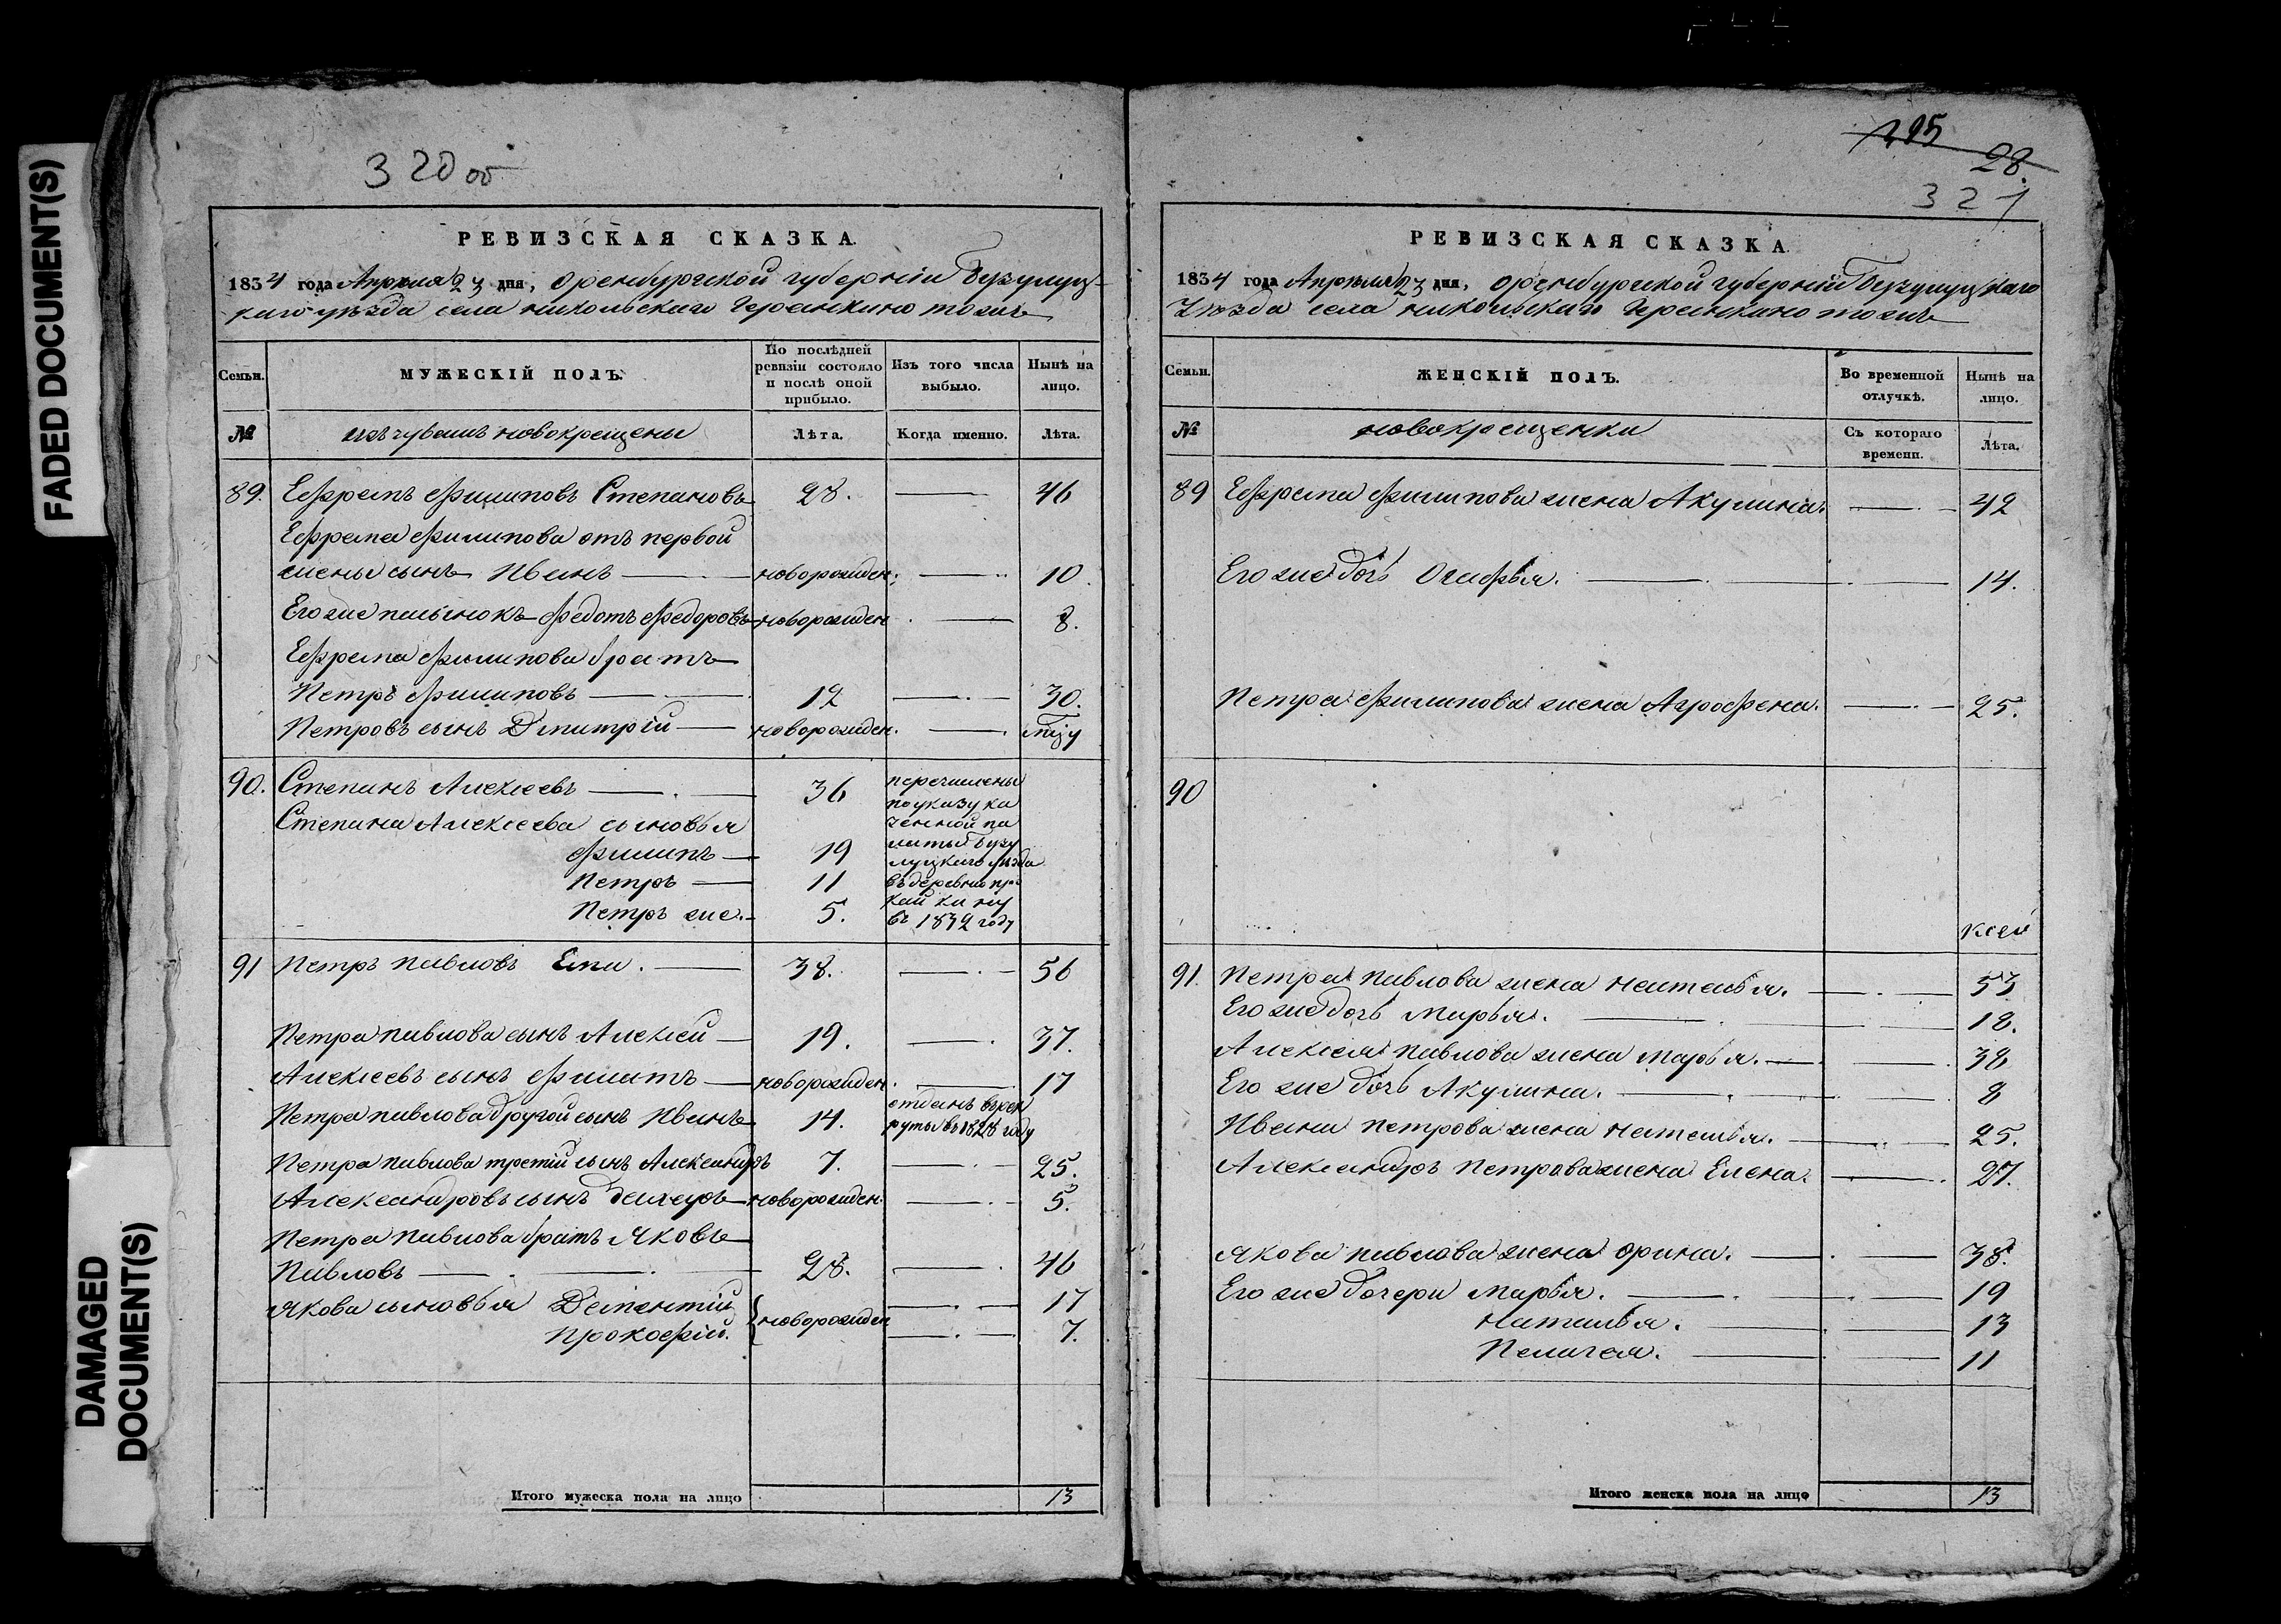 FADED DOCUMENT(S)
DAMAGED
DOCUMENT(S)
3 20 об
РЕВИЗСКАЯ СКАЗКА.
1834 года Апреля 23 дня, Оренбургской губернiи Бузулуц-
каго уѣзда села никольскаго Геранкино тожъ
Семьи.
МУЖЕСКIЙ ПОЛЪ.
По послѣдней ревизiи состояло и послѣ оной прибыло.
Изъ того числа выбыло.
Нынѣ на лицо.
№
изъ чувашъ новокрещены
Лѣта.
Когда именно.
Лѣта.
89. Ефремъ Филиповъ Степановъ 28. 46
Ефрема Филипова отъ первой
жены сынъ Иванъ новорожден. 10.
Его же пасынокъ Федотъ Федоровъ новорожден 8.
Ефрема Филипова братъ
Петръ Филиповъ 12 30.
Петровъ сынъ Дмитрiй новорожден.
90. Степанъ Алексеевъ 36 перечислены
по указу ка
Степана Алексеева сыновья зенной па
Филипъ 19 латы Бузу
луцкаго уѣзда
Петръ 11 въ деревню
Петръ же. 5. въ 1832 году
91 Петръ павловъ 38. 56
Петра павлова сынъ Алексей 19. 37.
Алексеевъ сынъ Филатъ новорожден. 17
Петра павлова другой сынъ Иванъ 14. отданъ въ рек
руты въ 1828 году
Петра павлова третiй сынъ Александръ 7. 25.
Александровъ сынъ Захаръ новорожден. 5.
Петра павлова братъ Яковъ
Павловъ 28. 46
Якова сыновья Дементiй новорожден 17
Прокофiй. 7.
Итого мужеска пола на лицо 13
195
28.
3 2 1
РЕВИЗСКАЯ СКАЗКА.
1834 года Апреля 23 дня, Оренбургской губернiи Бузулуцкаго
Уѣзда села никольскаго Геранкино тожъ
Семьи.
ЖЕНСКIЙ ПОЛЪ.
Во временной отлучкѣ.
Нынѣ на лицо.
№
новокрещенки
Съ котораго времени.
Лѣта.
89 Ефрема Филипова жена Акулина. 42
Его же дочь Агафья. 14.
Петра Филипова жена Агрофена. 25.
90
91. Петра павлова жена наталья. 53
Его же дочь Марья. 18.
Алексея павлова жена марья. 38
Его же дочь Акулина. 8
Ивана петрова жена наталья. 25.
Александръ петрова жена Елена. 27.
Якова павлова жена орина. 38.
Его же дочери Марья. 19
наталья. 13
Пелагея. 11
Итого женска пола на лицо 13